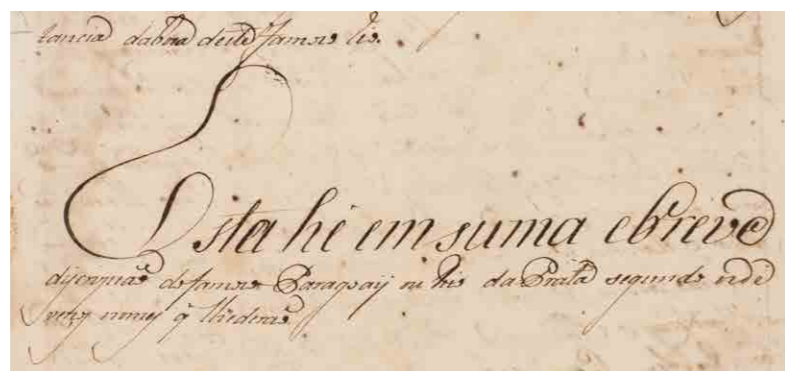 tancia dabõa deste famozo Rio.
Esta hé em suma ebreve
discripçaõ do famozo Paraguaÿ ou Rio da Prata segundo
nomes q̃ lhederaõ